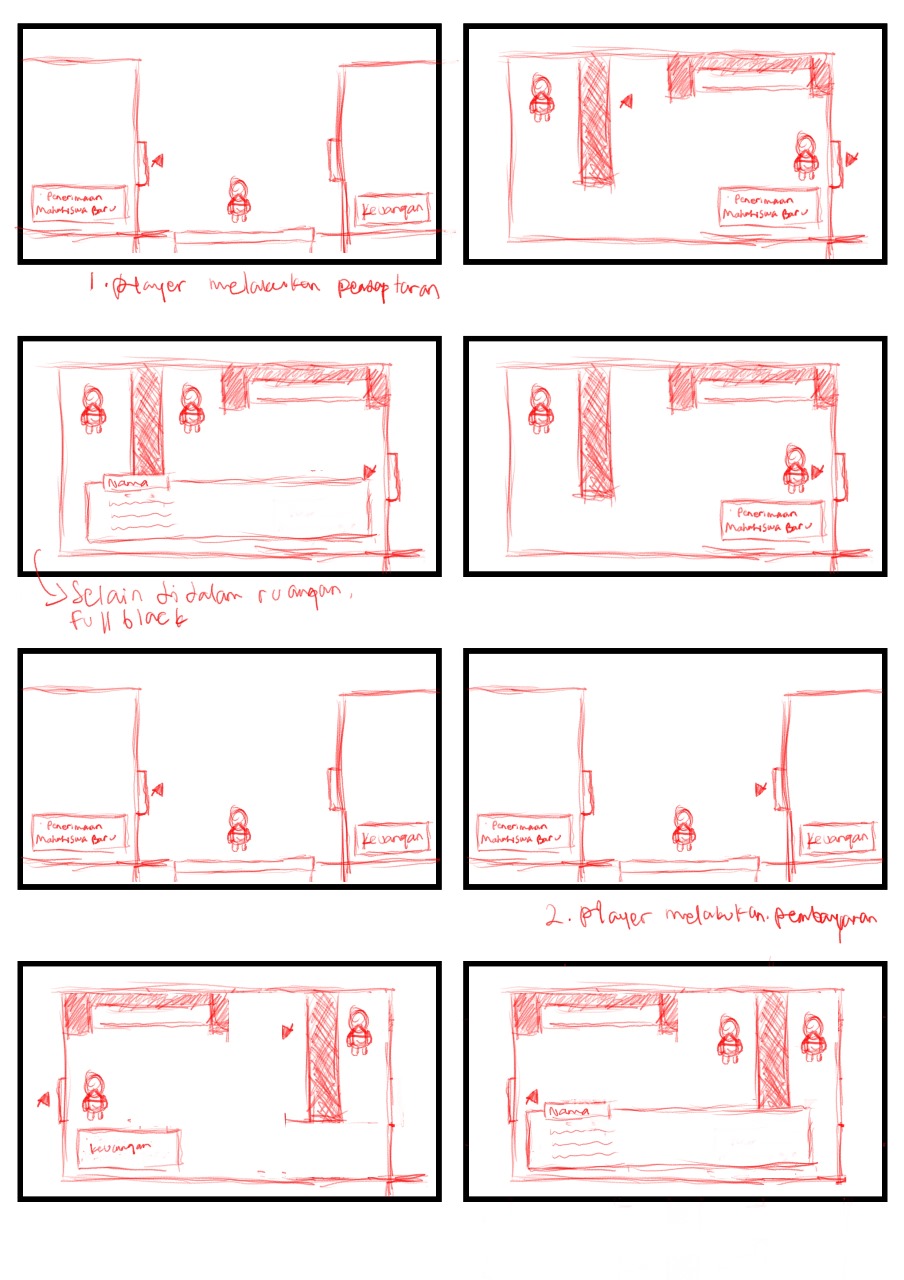 Penerimaan
Mahasiswa Baru
Keuangan
Penerimaan
Mahasiswa Baru
1. player melakukan pendaptaran
Nama
Penerimaan
Mahasiswa Baru
Selain di dalam ruangan,
full black
Penerimaan
Mahasiswa Baru
Keuangan
Penerimaan
Mahasiswa Baru
Keuangan
2. player melakukan pembayaran
Keuangan
Nama